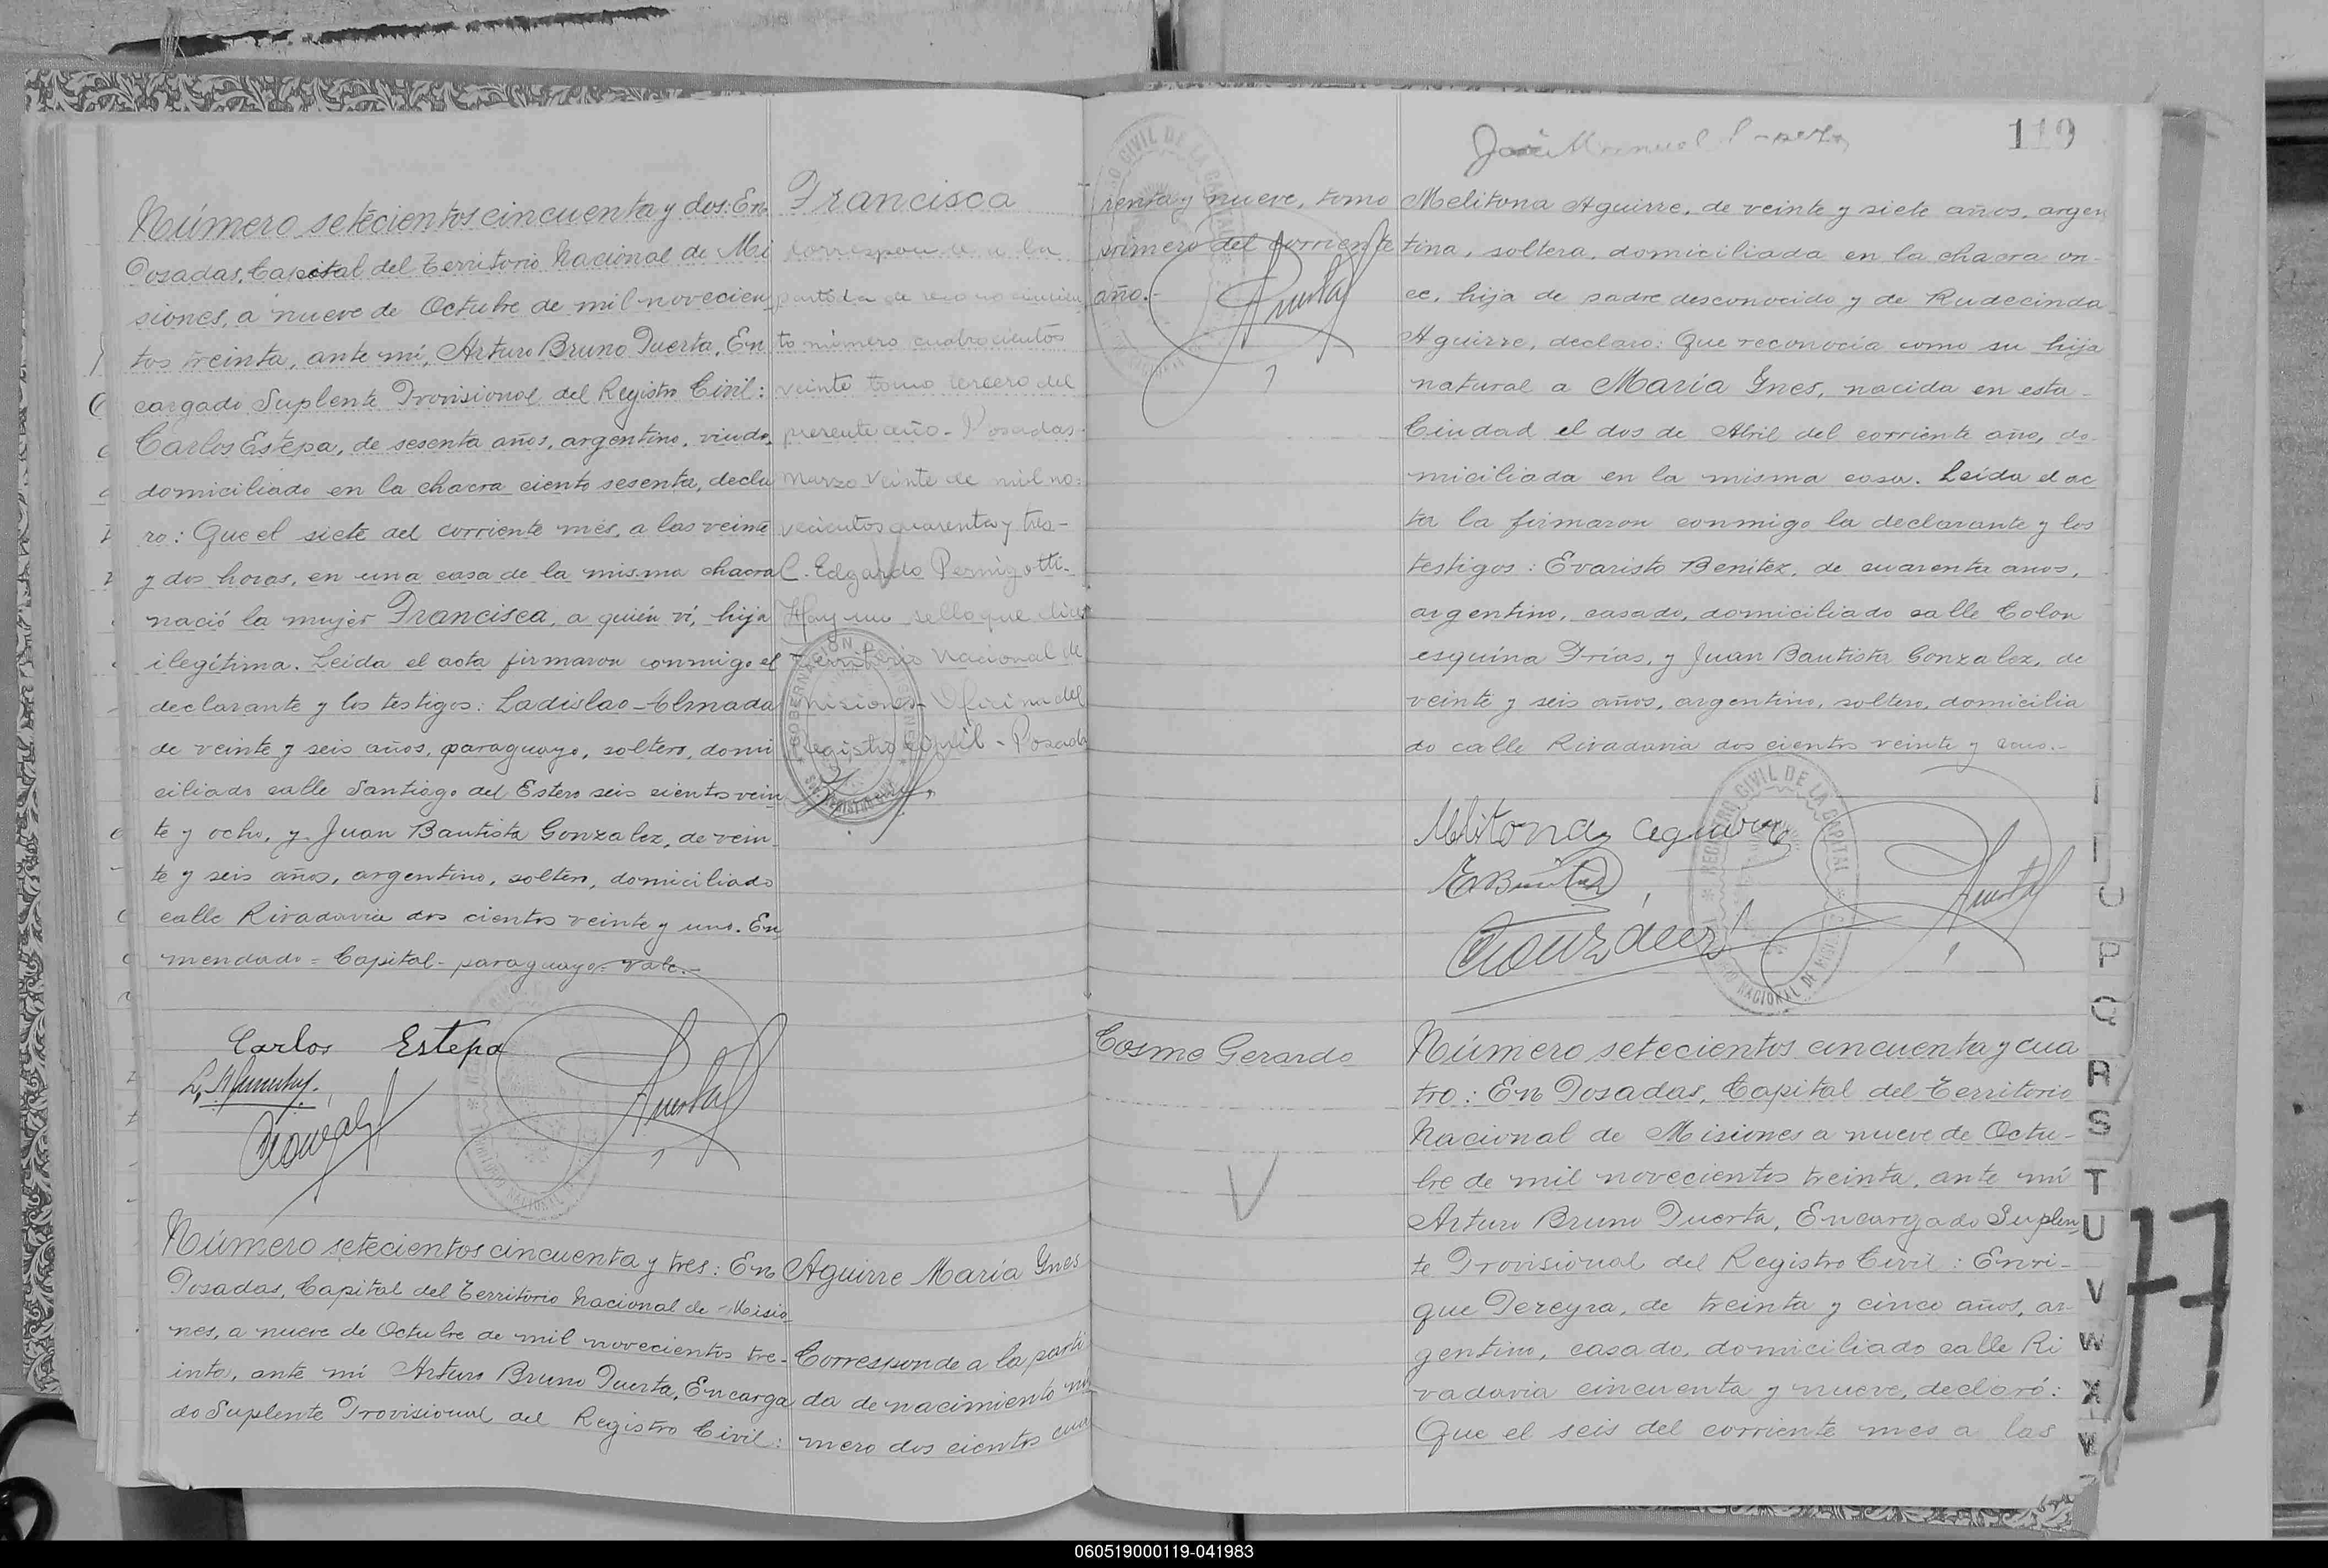 Número setecientos cincuenta y dos: En
Posadas, Capital del Territorio Nacional de Mi
siones, a nueve de Octubre de mil novecien
tos treinta, ante mí, Arturo Bruno Puerta, En
cargado Suplente Provisional del Registro Civil:
Carlos Estepa, de sesenta años, argentino, viudo,
domiciliado en la chacra ciento sesenta, decla
ro: Que el siete del corriente mes, a las veinte
y dos horas, en una casa de la misma chacra
nació la mujer Francisca, a quién ví, hija
ilegítima. Leída el acta firmaron conmigo el
declarante y los testigos: Ladislao Almada
de veinte y seis años, paraguayo, soltero, domi
ciliado calle Santiago del Estero seis cientos vein
te y ocho, y Juan Bautista Gonzalez, de vein
te y seis años, argentino, soltero, domiciliado
calle Rivadavia dos cientos veinte y uno. En
mendado = Capital - paraguayo = vale.-
Carlos Estepa
Francisca
Corresponde a la
partida de reconocimien
to número cuatrocientos
veinte tomo tercero del
presente año - Posadas
Marzo veinte de mil no-
vecientos cuarenta y tres-
C. Edgardo Pernigotti-
Hay un sello que dice
Territorio Nacional de
Misiones - Oficina del
Registro Civil - Posadas
GOBERNACIÓN DE MISIONES
REGISTRO CIVIL
Número setecientos cincuenta y tres: En
Posadas, Capital del Territorio Nacional de Misio
nes, a nueve de Octubre de mil novecientos tre-
inta, ante mí Arturo Bruno Puerta, Encarga
do Suplente Provisional del Registro Civil:
Aguirre María Ynes
Corresponde a la parti
da de nacimiento nú
mero dos cientos cua
renta y nueve, tomo
primero del corriente
año.-
Puerta
119
José Manuel
Melitona Aguirre, de veinte y siete años, argen
tina, soltera, domiciliada en la chacra on-
ce, hija de padre desconocido y de Rudecinda
Aguirre, declaro: Que reconocía como su hija
natural a María Ynes, nacida en esta
Ciudad el dos de Abril del corriente año, do-
miciliada en la misma casa. Leída el ac
ta la firmaron conmigo la declarante y los
testigos: Evaristo Benitez, de cuarenta años,
argentino, casado, domiciliado calle Colon
esquina Frías, y Juan Bautista Gonzalez, de
veinte y seis años, argentino, soltero, domicilia
do calle Rivadavia dos cientos veinte y uno.-
Melitona Aguirre
E Benitez
Puerta
REGISTRO CIVIL DE LA CAPITAL
Cosme Gerardo
Número setecientos cincuenta y cua
tro: En Posadas, Capital del Territorio
Nacional de Misiones a nueve de Octu-
bre de mil novecientos treinta, ante mí
Arturo Bruno Puerta, Encargado Suplen
te Provisional del Registro Civil: Enri-
que Pereyra, de treinta y cinco años, ar-
gentino, casado, domiciliado calle Ri
vadavia cincuenta y nueve, declaró:
Que el seis del corriente mes a las
P
Q
R
S
T
U
V
W
X
060519000119-041983